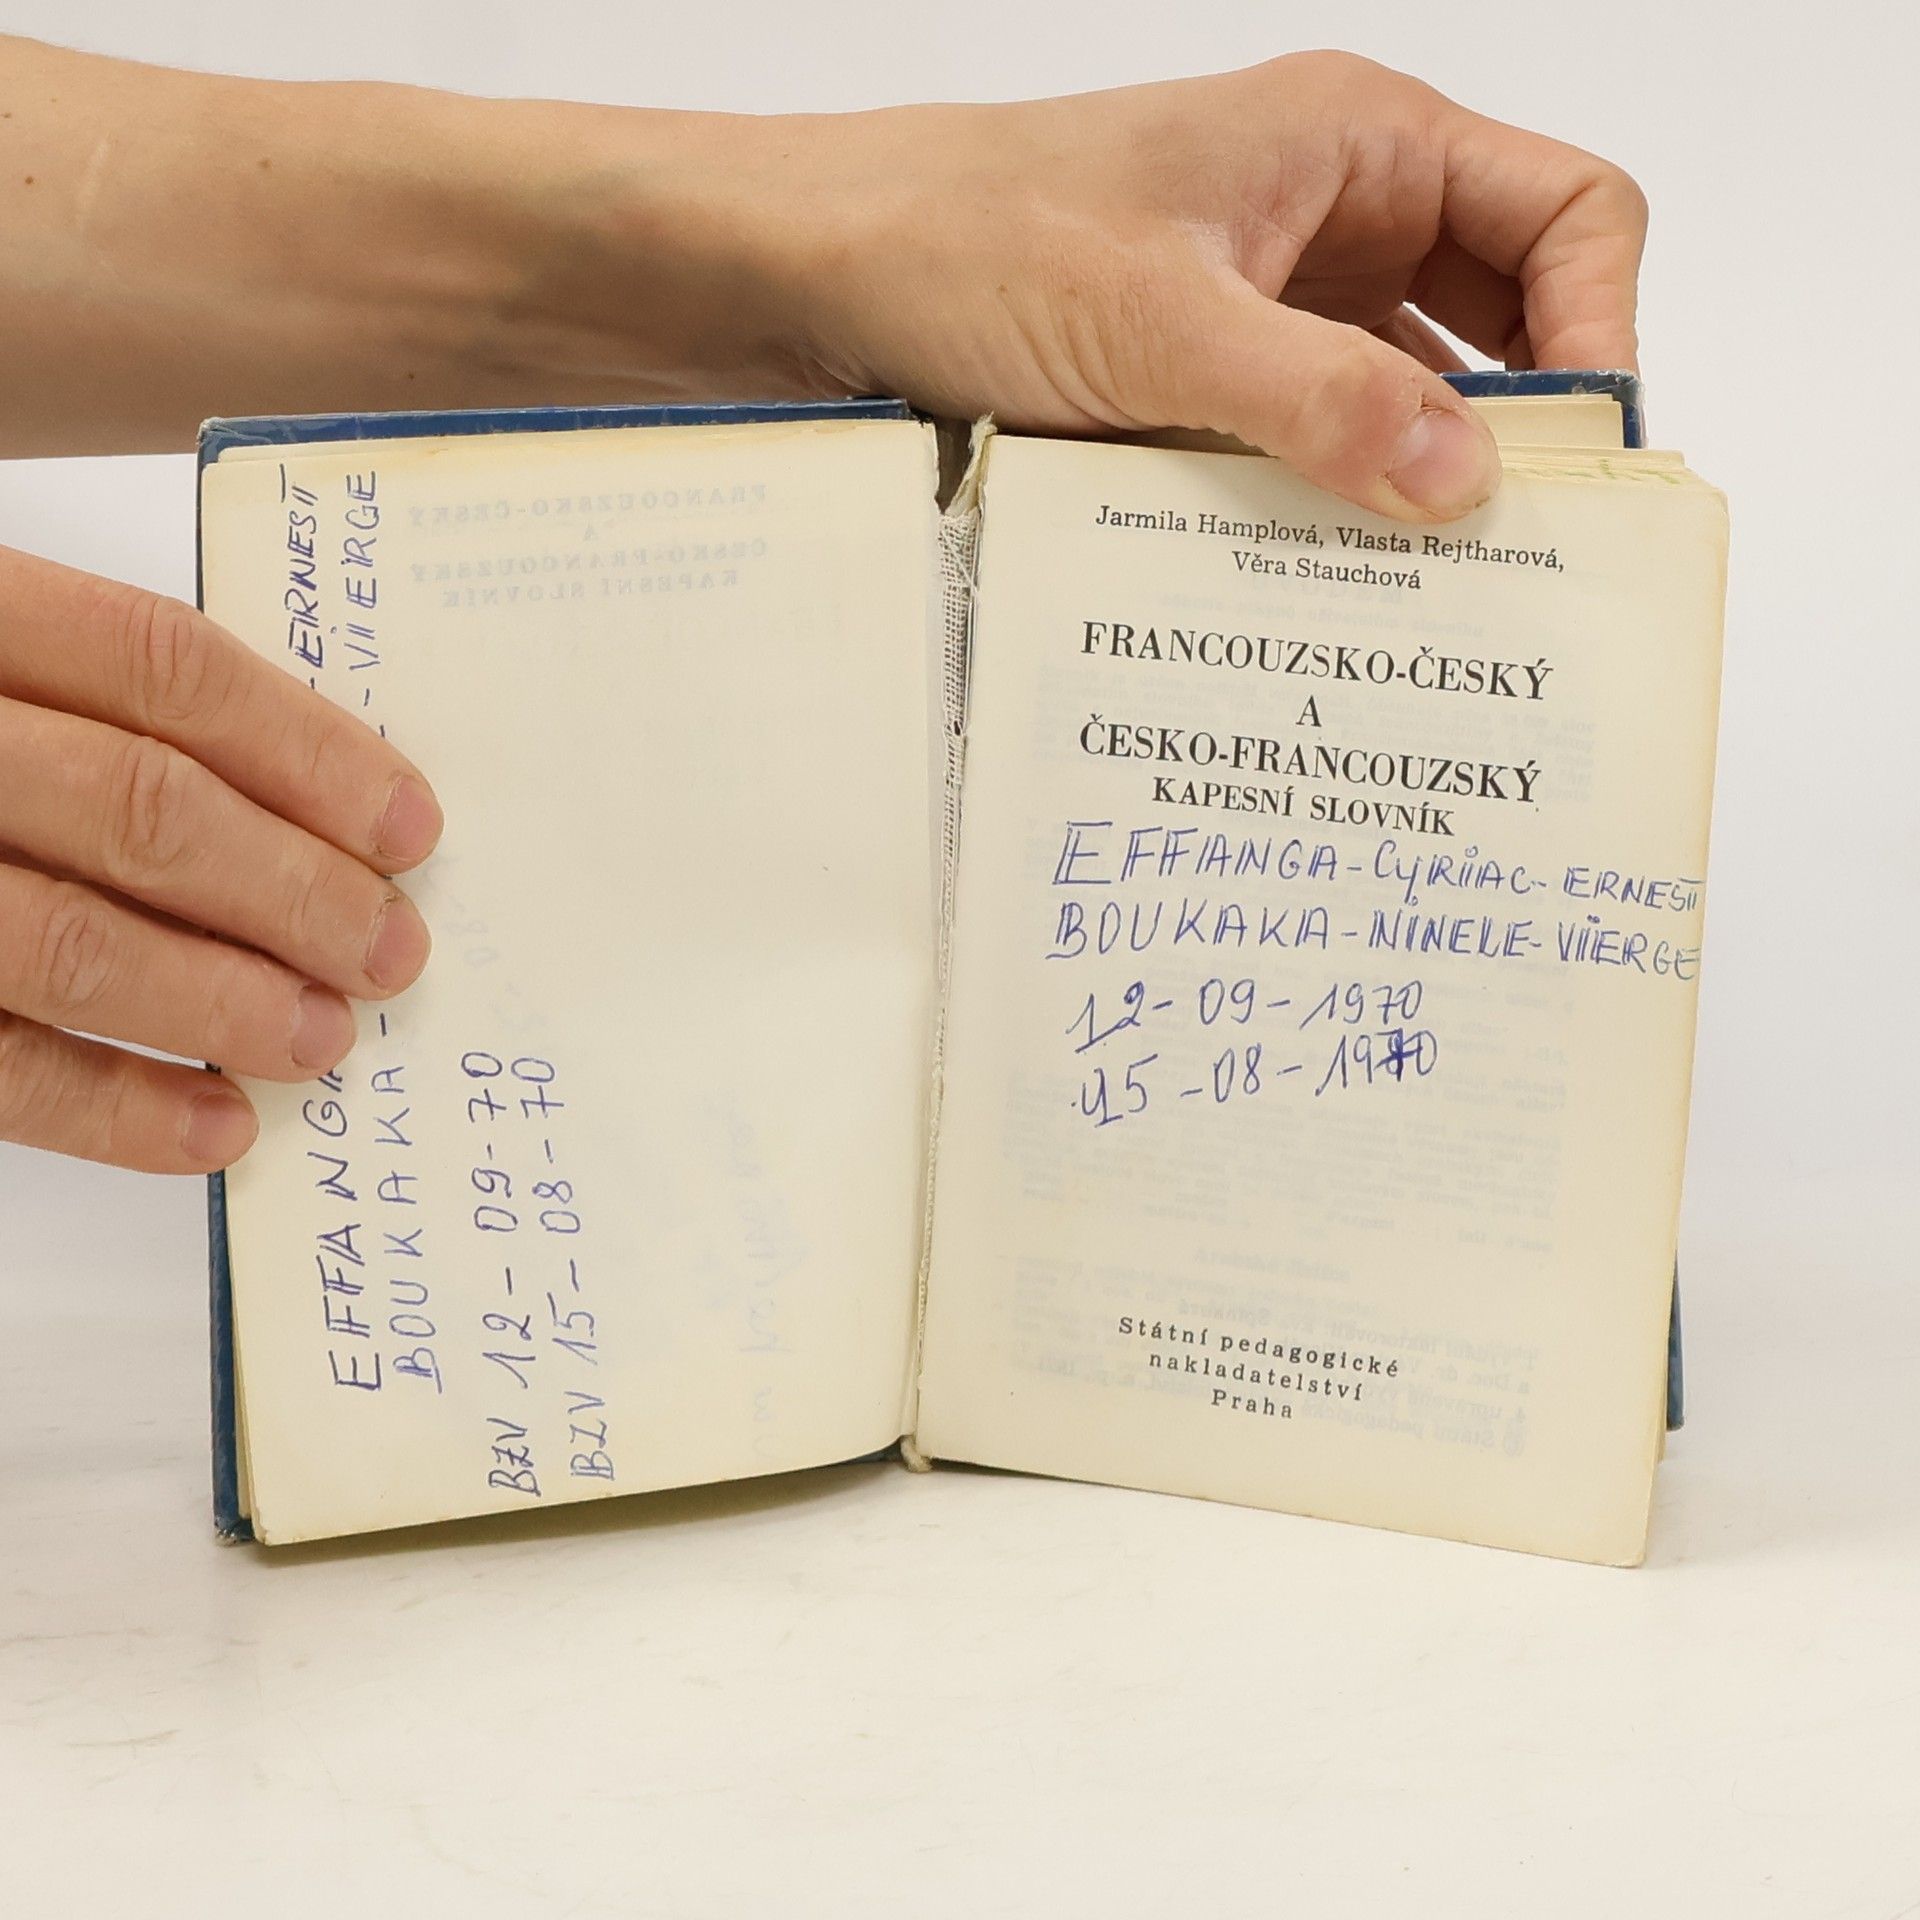 EFFANGA
- ERNEST
BOUKAKA -
- VIERGE
BZV 12 - 09 - 70
BZV 15 - 08 - 70
Jarmila Hamplová, Vlasta Rejtharová,
Věra Stauchová
FRANCOUZSKO-ČESKÝ
A
ČESKO-FRANCOUZSKÝ
KAPESNÍ SLOVNÍK
EFFANGA - CYRIAC - ERNEST
BOUKAKA - NINELE - VIERGE
12 - 09 - 1970
15 - 08 - 1970
Státní pedagogické
nakladatelství
Praha